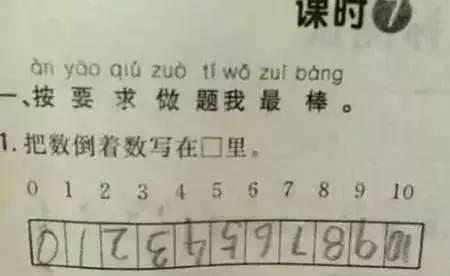 课时7
àn yāo qiú zuò tí wǒ zuì bàng
一、按要求做题我最棒。
1. 把数倒着数写在□里。
0 1 2 3 4 5 6 7 8 9 10
0 1 2 3 4 5 6 7 8 9 10